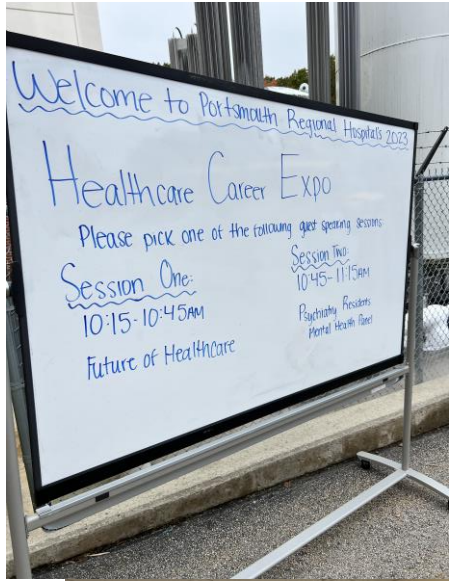 Welcome to Portsmouth Regional Hospital's 2023
Healthcare Career Expo
Please pick one of the following guest speaking sessions
Session One:
10:15-10:45AM
Future of Healthcare
Session Two:
10:45-11:15AM
Psychiatry Residents
Mental Health Panel